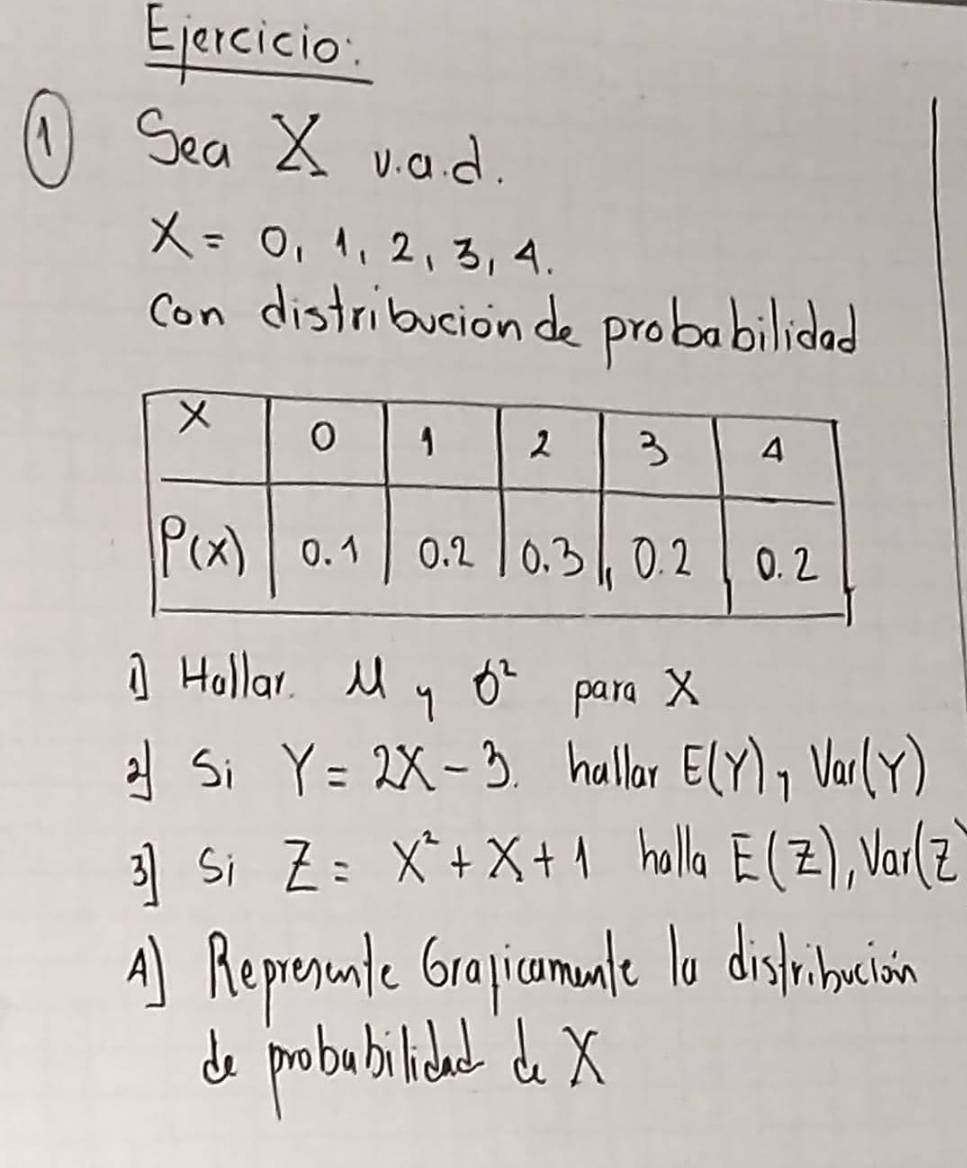 Ejercicio:
① Sea X v.a.d.
X = 0, 1, 2, 3, 4.
con distribución de probabilidad
X 0 1 2 3 4
P(X) 0.1 0.2 0.3 0.2 0.2
1] Hallar. μ y σ² para X
2] Si Y = 2X - 3. hallar E(Y), Var(Y)
3] Si Z = X² + X + 1 halla E(Z), Var(Z)
4] Represente Graficamente la distribución
de probabilidad de X